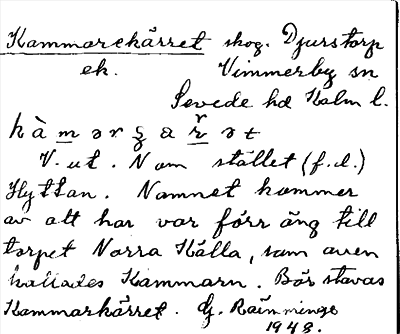 Kammarekärret skog. Djurstorp
ek. Vimmerby sn
Sevede hd Kalm l.
kàmərʂaṛət
V. ut. N om stället (f.d.)
Hyttan. Namnet kommer
av att har var förr äng till
torpet Norra Källa, som även
kallades Kammarn. Bör stavas
Kammarkärret. G. Räimminge
1948.